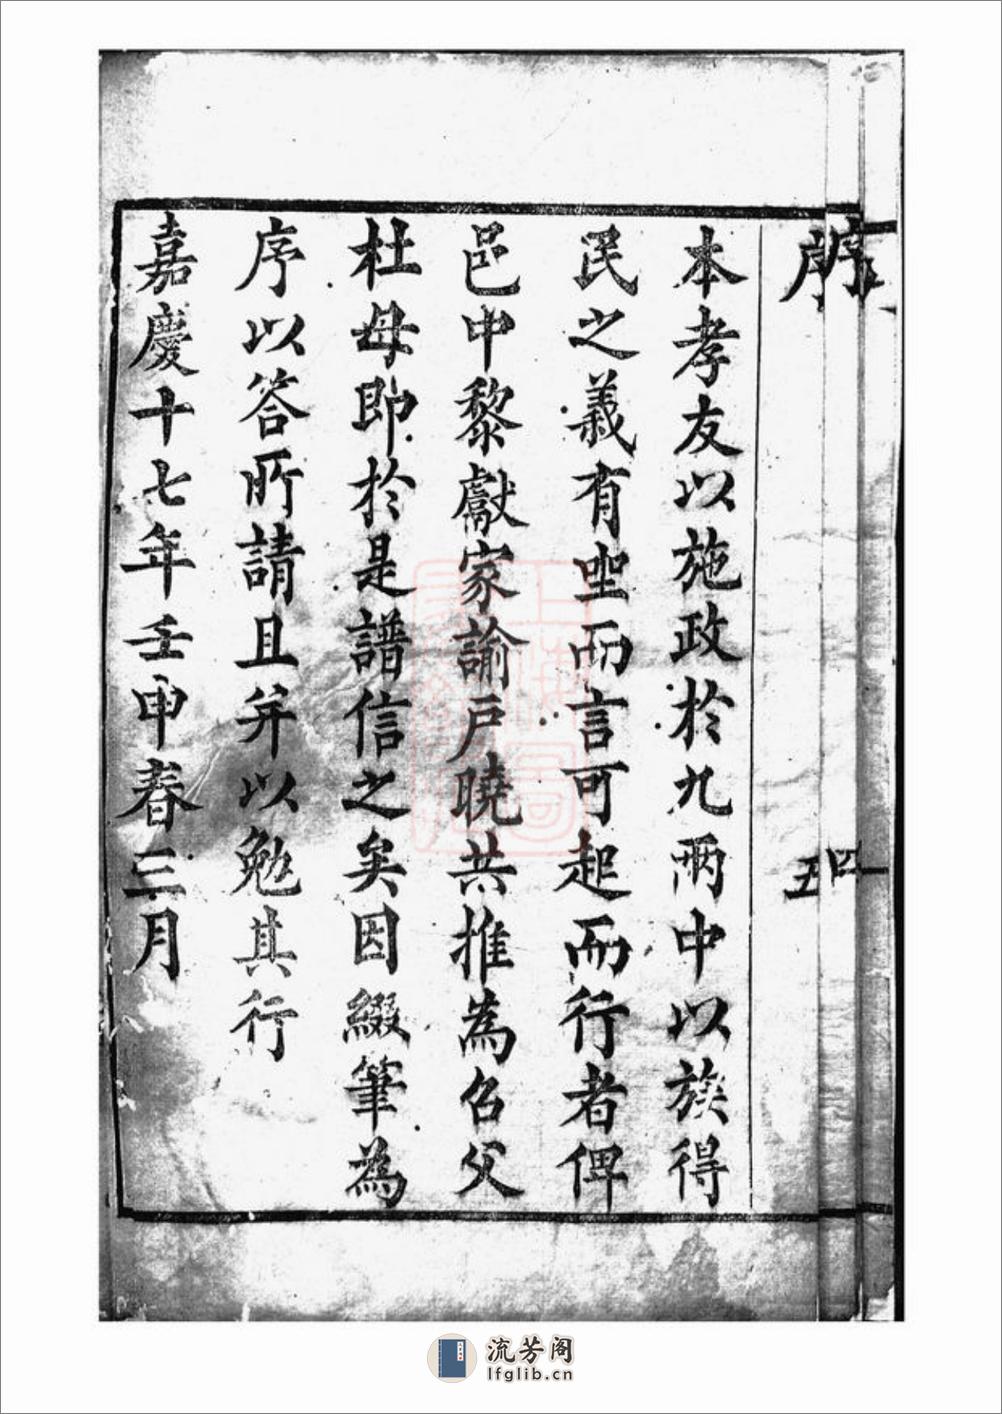 序
四
序
五
本孝友以施政於九兩中以族得
民之義有坐而言可起而行者俾
邑中黎獻家諭戸曉共推為召父
杜母即於是譜信之矣因綴筆為
序以答所請且并以勉其行
嘉慶十七年壬申春三月
流芳阁
lfglib.cn